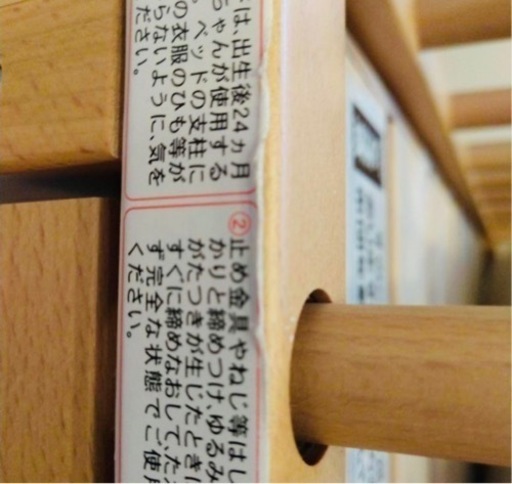 は、出生後24ヵ月
ちゃんが使用する
。ベッドの支柱に
の衣服のひも等が
らないように、気を
ださい。
②止め金具やねじ等はし
かりと締めつけ、ゆるみ
がたつきが生じたとき
すぐに締めなおして、た
ず完全な状態でご使用
ください。